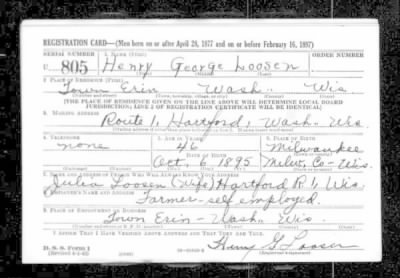 REGISTRATION CARD—(Men born on or after April 28, 1877 and on or before February 16, 1897)
SERIAL NUMBER 1. NAME (Print) ORDER NUMBER
U 805 Henry George Loosen
2. PLACE OF RESIDENCE (Print)
Town Erin Wash. Wis
(Number and street) (Town, township, village, or city) (County) (State)
[THE PLACE OF RESIDENCE GIVEN ON THE LINE ABOVE WILL DETERMINE LOCAL BOARD
JURISDICTION; LINE 2 OF REGISTRATION CERTIFICATE WILL BE IDENTICAL]
3. MAILING ADDRESS
Route 1, Hartford, Wash. Wis.
4. TELEPHONE 5. AGE IN YEARS 6. PLACE OF BIRTH
none 46 Milwaukee
DATE OF BIRTH
Oct. 6 1895 Milw. Co-Wis.
7. NAME AND ADDRESS OF PERSON WHO WILL ALWAYS KNOW YOUR ADDRESS
Julia Loosen (Wife) Hartford R 1, Wis.
8. EMPLOYER'S NAME AND ADDRESS
Farmer-self employed.
9. PLACE OF EMPLOYMENT OR BUSINESS
Town Erin-Wash. Wis.
I AFFIRM THAT I HAVE VERIFIED ABOVE ANSWERS AND THAT THEY ARE TRUE.
D. S. S. Form 1
(Revised 4-1-42) Henry G Loosen